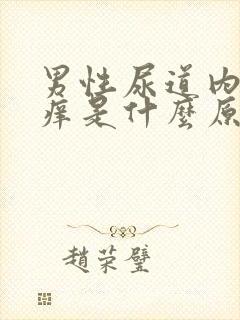 男性尿道内
痒是什麼原
趙荣璧